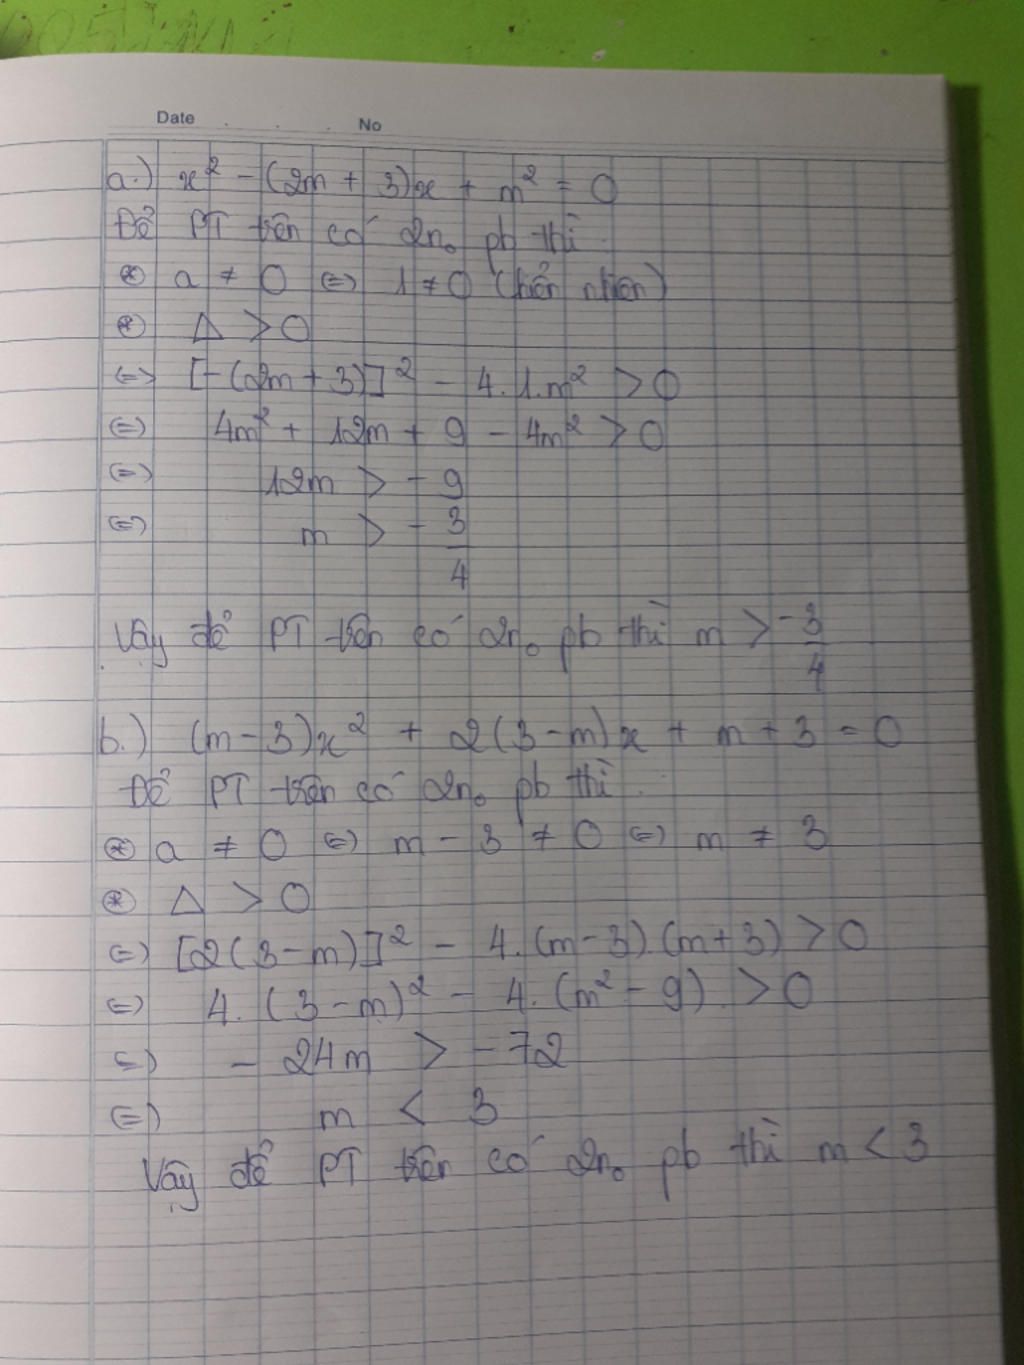 Date No
a.) x² - (2m + 3)x + m² = 0
Để PT trên có 2n₀ pb thì.
⊛ a ≠ 0 ⇔ 1 ≠ 0 (hiển nhiên)
⊛ Δ > 0
⇔ [-(2m + 3)]² - 4.1.m² > 0
⇔ 4m² + 12m + 9 - 4m² > 0
⇔ 12m > -9
⇔ m > -3/4
Vậy để PT trên có 2n₀ pb thì m > -3/4
b.) (m-3)x² + 2(3-m)x + m + 3 = 0
Để PT trên có 2n₀ pb thì.
⊛ a ≠ 0 ⇔ m - 3 ≠ 0 ⇔ m ≠ 3
⊛ Δ > 0
⇔ [2(3-m)]² - 4.(m-3).(m+3) > 0
⇔ 4.(3-m)² - 4.(m² - 9) > 0
⇔ - 24m > -72
⇔ m < 3
Vậy để PT trên có 2n₀ pb thì m < 3